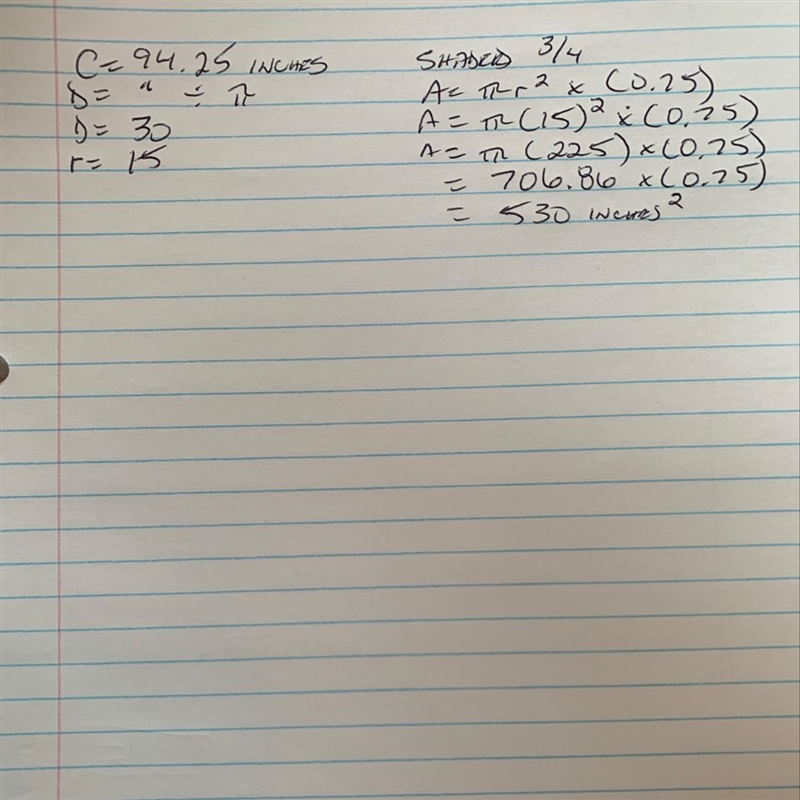 C = 94.25 INCHES
D = " ÷ π
D = 30
r = 15
SHADED 3/4
A = πr² × (0.75)
A = π(15)² × (0.75)
A = π(225) × (0.75)
= 706.86 × (0.75)
= 530 INCHES²